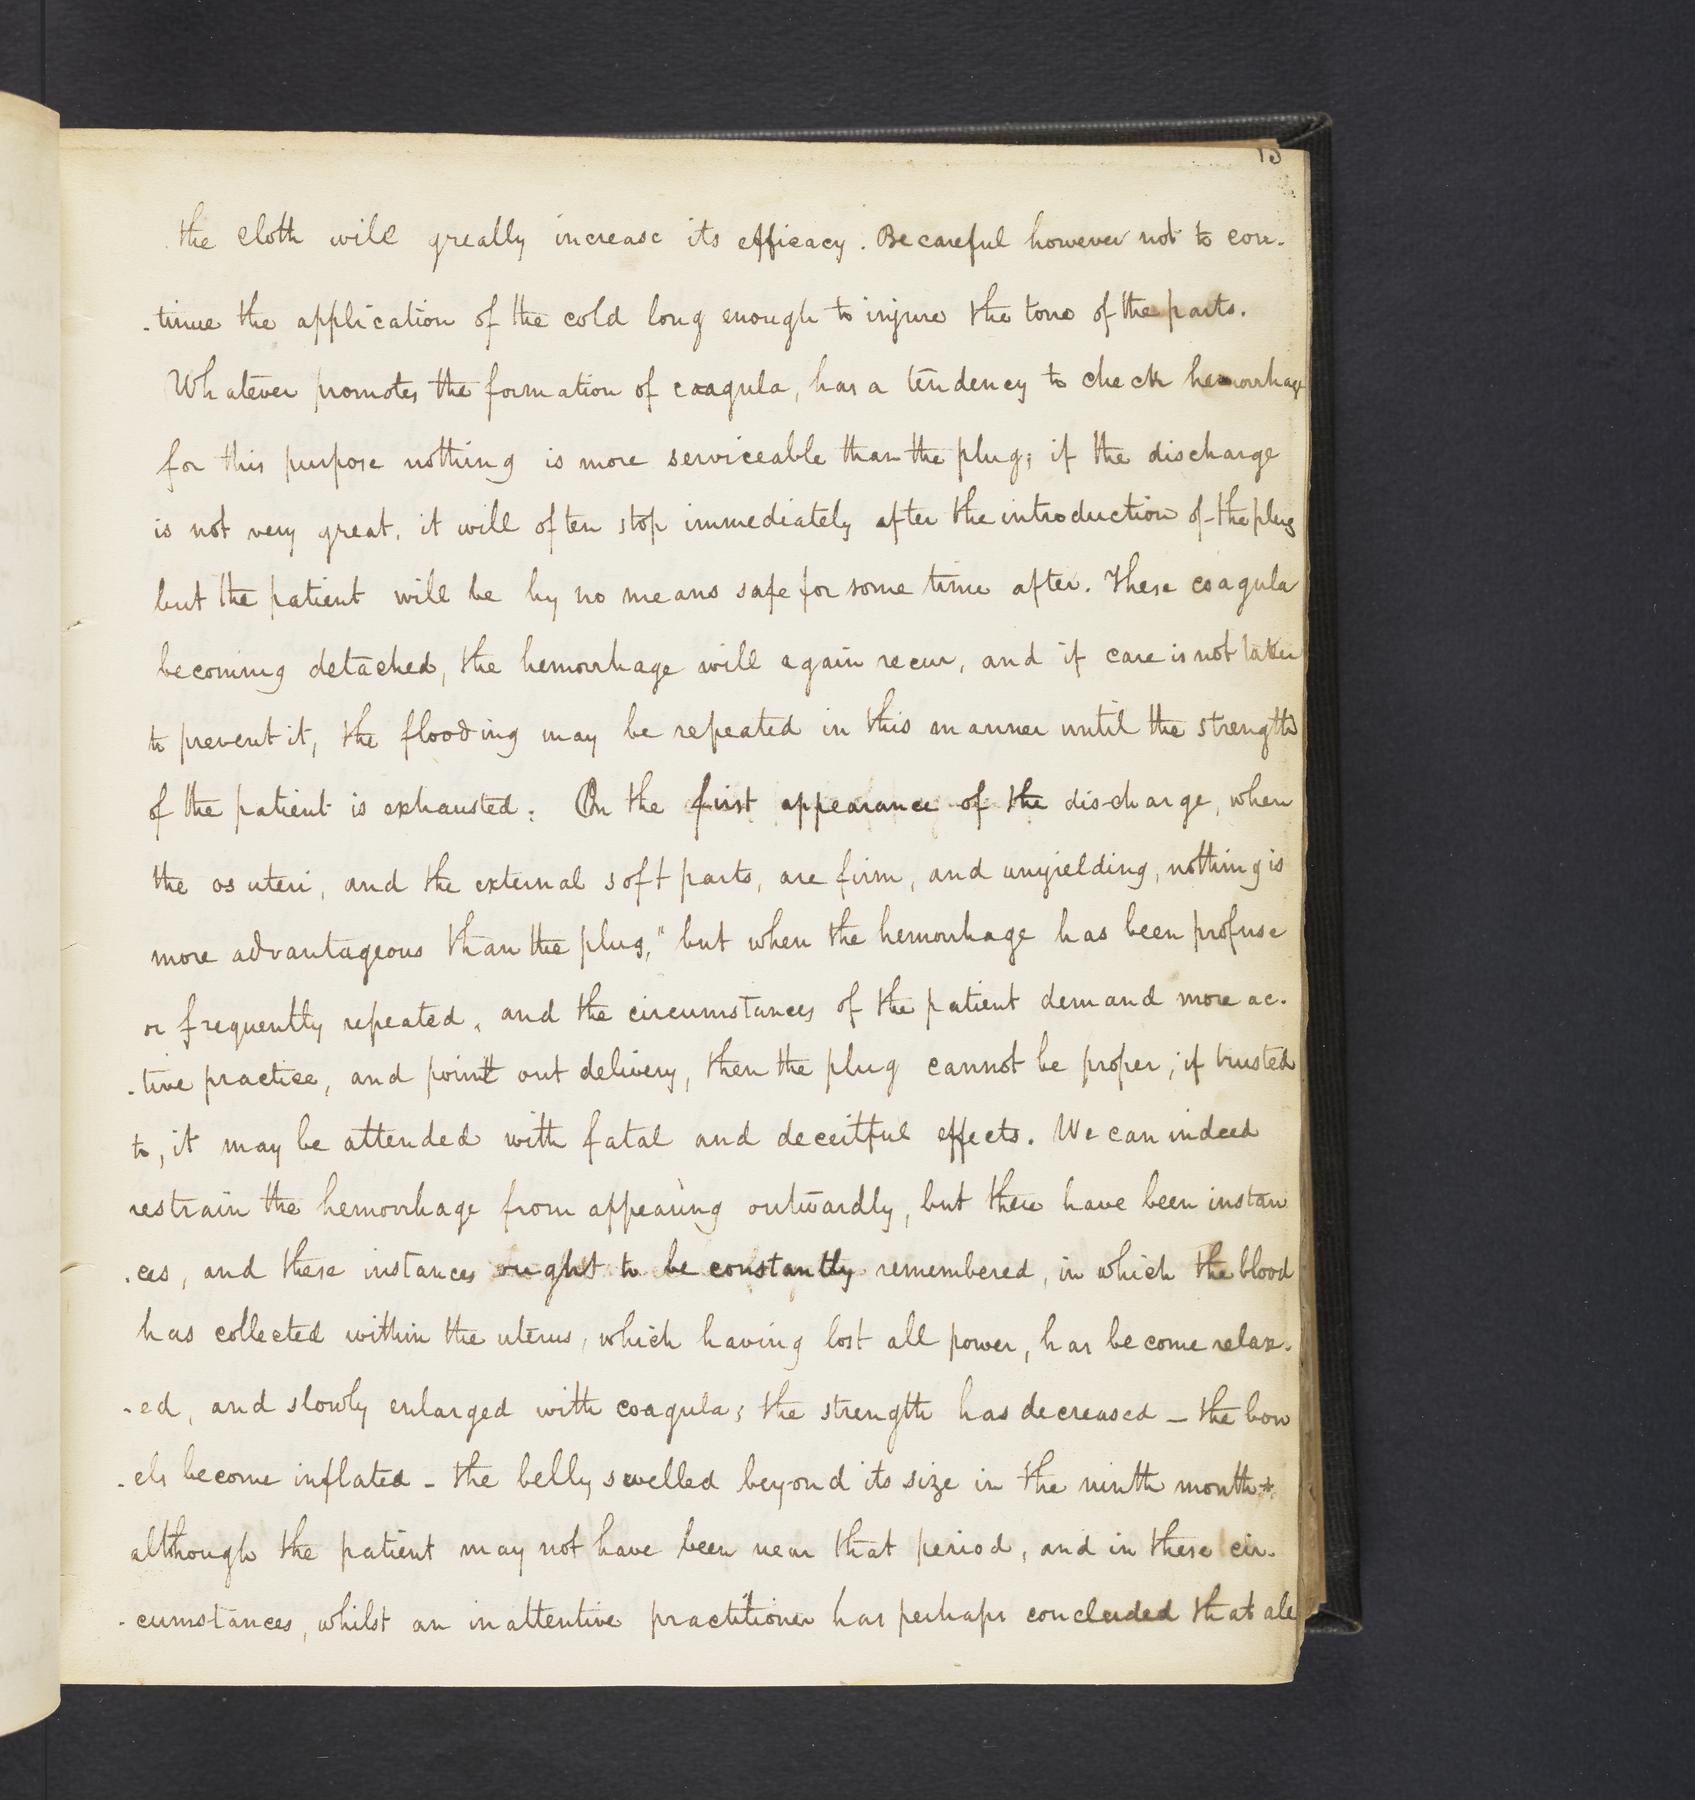 15
the cloth will greatly increase its efficacy. Be careful however not to con-
-tinue the application of the cold long enough to injure the tone of the parts.
Whatever promotes the formation of coagula, has a tendency to check hemorrhage
for this purpose nothing is more serviceable than the plug; if the discharge
is not very great, it will often stop immediately after the introduction of the plug
but the patient will be by no means safe for some time after. These coagula
becoming detached, the hemorrhage will again recur, and if care is not taken
to prevent it, the flooding may be repeated in this manner until the strength
of the patient is exhausted: On the first appearance of the discharge, when
the os uteri, and the external soft parts, are firm, and unyielding, nothing is
more advantageous than the plug," but when the hemorrhage has been profuse
or frequently repeated, and the circumstances of the patient demand more ac-
-tive practice, and point out delivery, then the plug cannot be proper; if trusted
to, it may be attended with fatal and deceitful effects. We can indeed
restrain the hemorrhage from appearing outwardly, but there have been instan
-ces, and these instances ought to be constantly remembered, in which the blood
has collected within the uterus, which having lost all power, has become relax-
-ed, and slowly enlarged with coagula; the strength has decreased - the bow
-els become inflated - the belly swelled beyond its size in the ninth month*
although the patient may not have been near that period, and in these cir-
-cumstances, whilst an inattentive practitioner has perhaps concluded that all